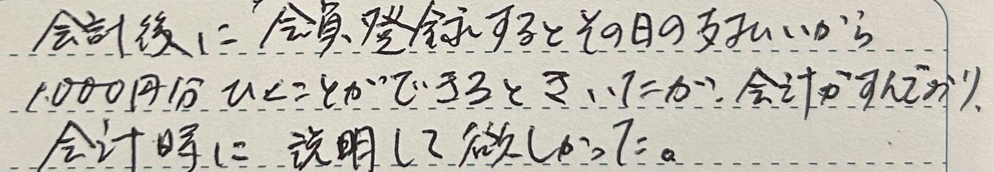 会計後に会員登録するとその日の支払いから
1,000円分ひくことができるときいたが、会計がすんでおり、
会計時に説明して欲しかった。